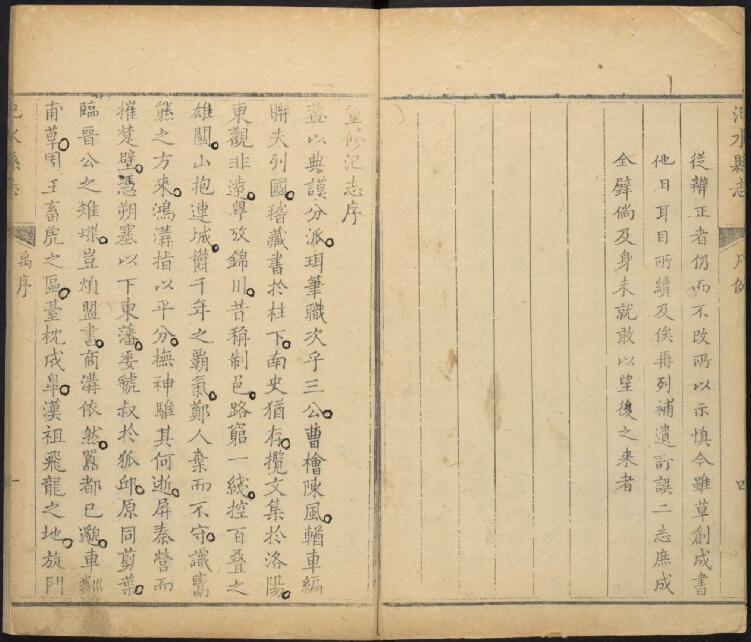 汜水縣志
凡例
四
從辨正者仍而不改所以示慎今雖草創成書
他日耳目所續及俟再列補遺訂誤二志庶成
全璧倘及身未就敢以望後之来者
重修汜志序
葢以典謨分派珥筆職次乎三公曹檜陳風輶車編
聨夫列國稽藏書扵柱下南史猶存攬文集扵洛陽
東觀非遠粤攷錦川昔稱制邑路窮一綫控百叠之
雄關山抱連城欝千年之霸氣鄭人棄而不守讖鴬
熊之方來鴻溝指以平分撫神騅其何逝屏秦營而
摧楚壁憑朔塞以下東藩委虢叔扵狐邱原同剪葉
臨晉公之雉堞豈煩盟書商溝依然嚚都已邈車
甫草周王畜虎之區臺枕成臯漢祖飛龍之地旋門
汜水縣志
禹序
一